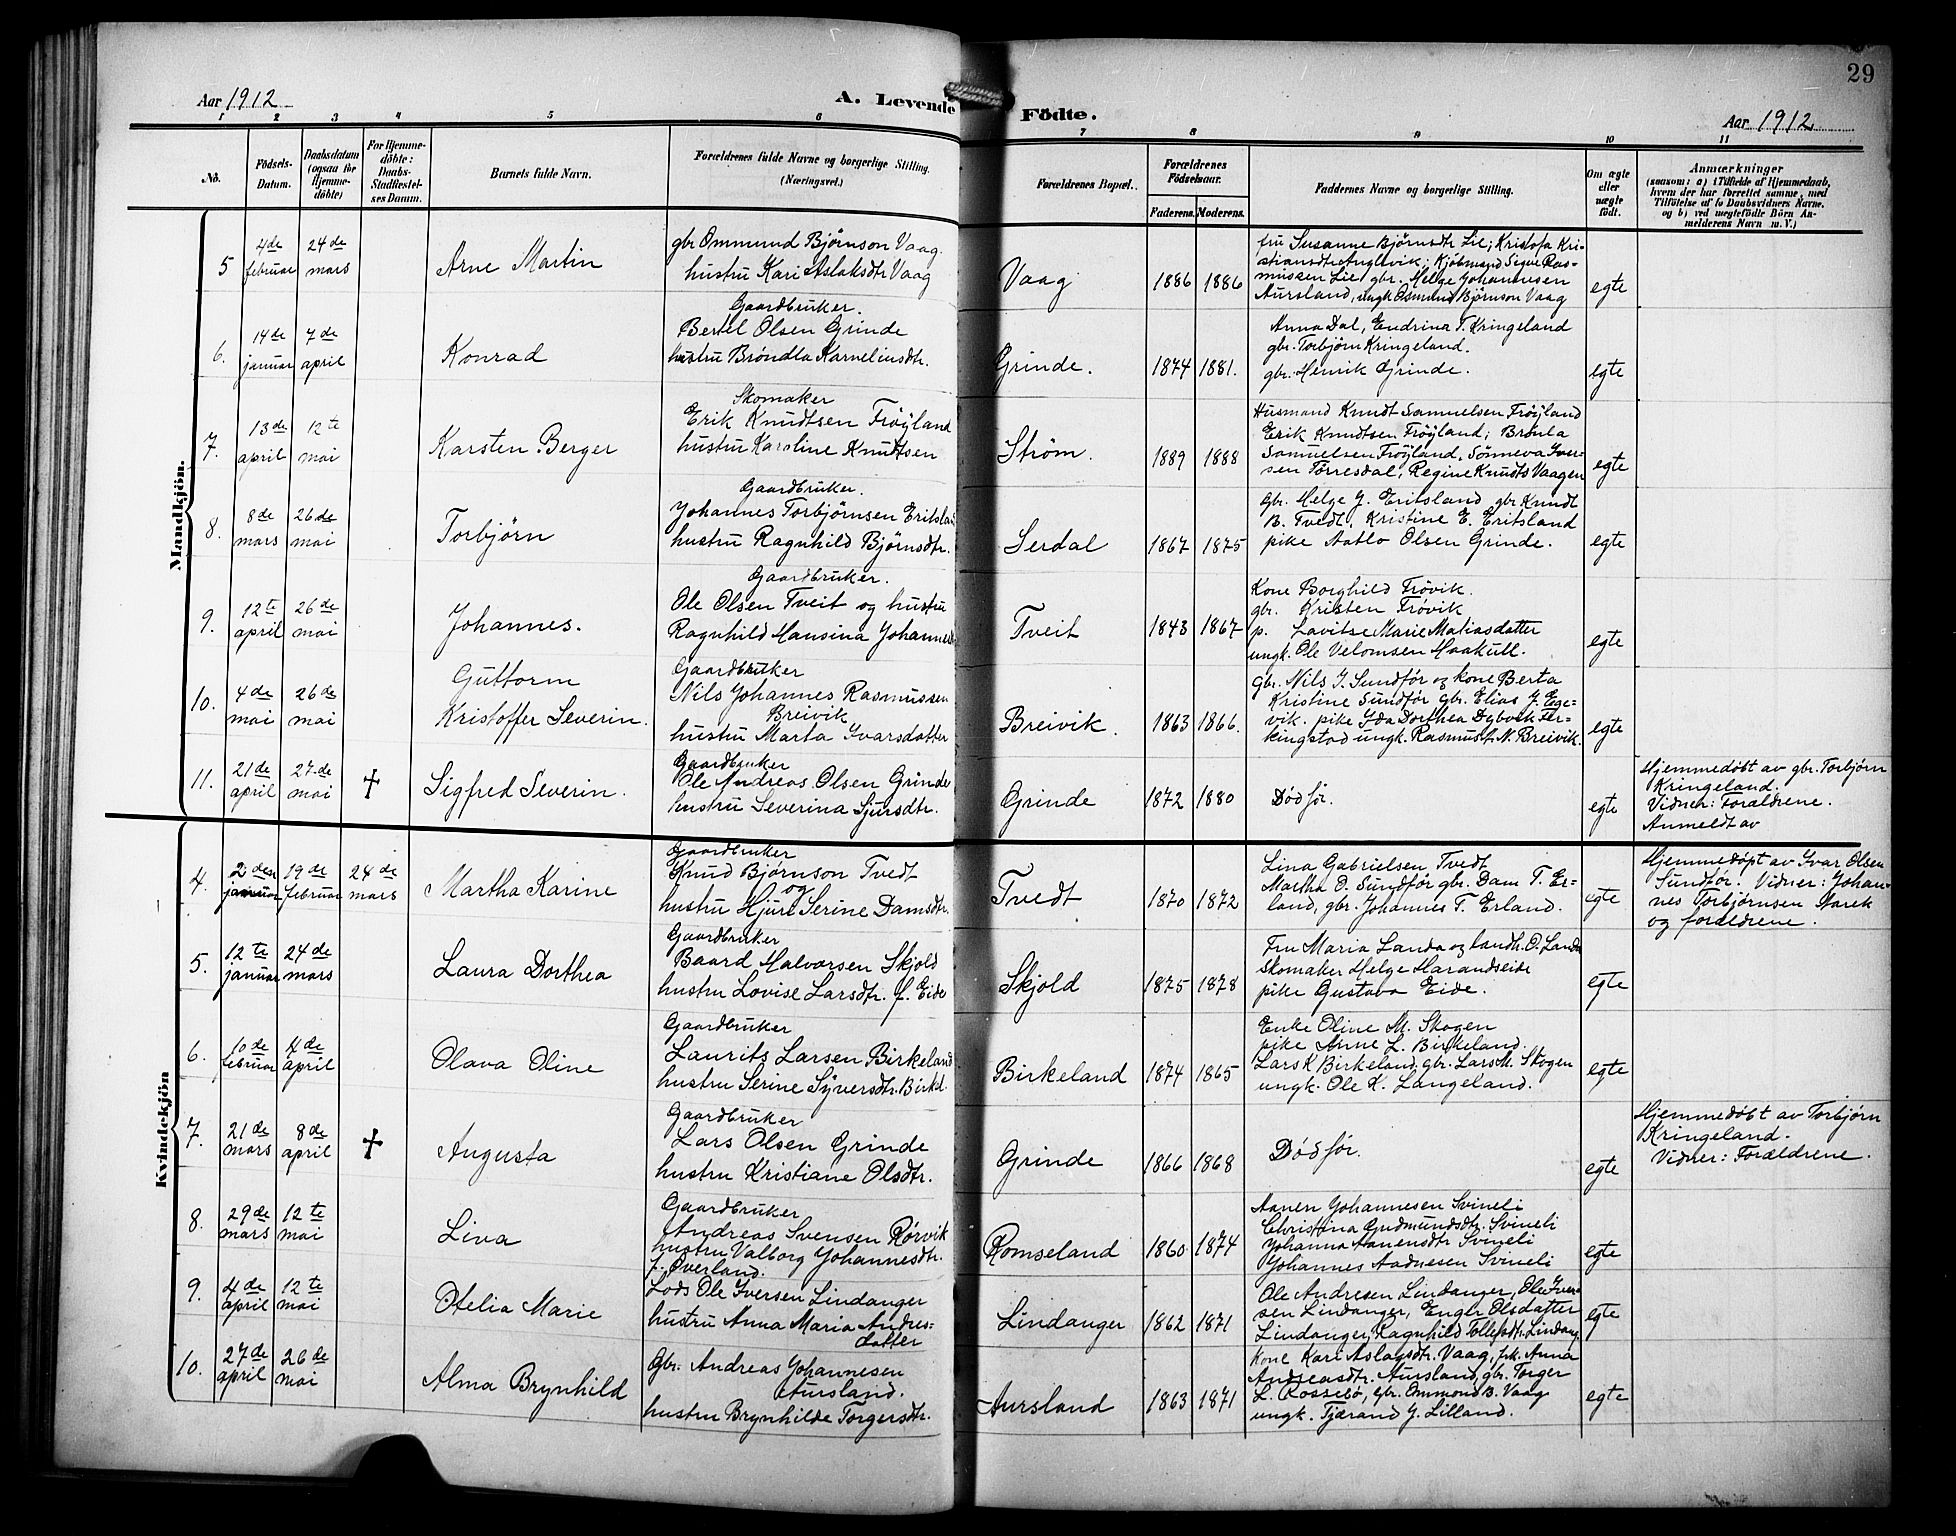 29
Aar 1912
A. Levende Födte.
Aar 1912
1 2 3 4 5 6 7 8 9 10 11
No.
Födsels-
Datum.
Daabsdatum
(ogsaa for
Hjemme-
döbte)
For Hjemme-
döbte:
Daabs-
Stadfæstel-
ses Datum.
Barnets fulde Navn.
Forældrenes fulde Navne og borgerlige Stilling.
(Næringsvei.)
Forældrenes Bopæl.
Forældrenes
Födselsaar.
Faderens.
Moderens.
Faddernes Navne og borgerlige Stilling.
Om ægte
eller
uægte
født.
Anmærkninger
(saasom: a) i Tilfælde af Hjemmedaab,
hvem der har forrettet samme, med
Tilföielse af to Daabsvidners Navne,
og b) ved uægtefödte Börn An-
melderens Navn m. V.)
Mandkjön.
5
4de
februar
24de
mars
Arne Martin
gbr Ommund Bjørnson Vaag
hustru Kari Aslaksdtr Vaag
Vaag
1886
1886
fru Susanne Bjørnsdtr Lie; Kristofa Kri-
stiansdtr Anglevik; Kjøbmand Sigve Ras-
mussen Lie, gbr. Helge Johannesen
Aursland, ungk Osmund Bjørnson Vaag
egte
6.
14de
januar
7de
april
Konrad
Gaardbruker.
Bertel Olsen Grinde
hustru Brøndla Korneliusdtr.
Grinde.
1874
1881.
Anna Dal, Endrina T. Kringeland
gbr. Torbjørn Kringeland.
gbr. Henrik Grinde.
egte
7.
13de
april
12te
mai
Karsten Berger
Skomaker
Erik Knudtsen Frøyland
hustru Karoline Knudtsen
Strøm.
1889
1888
Husmand Knudt Samuelsen Frøyland
Erik Knudtsen Frøyland; Brønla
Samuelsen Frøyland, Sønneva Iver-
sen Tørresdal, Regine Knudts Vaagen
egte
8.
8de
mars
26de
mai
Torbjørn
Gaardbruker.
Johannes Torbjørnsen Eritsland
hustru Ragnhild Bjørnsdtr.
Serdal
1867
1875
Gbr. Helge J. Eritsland gbr Knudt
B. Tvedt, Kristine E. Eritsland
pike Aatlo Olsen Grinde.
egte
9.
12te
april
26de
mai
Johannes.
Gaardbruker.
Ole Olsen Tveit og hustru
Ragnhild Hansina Johannes
Tveit
1843
1867
Kone Borghild Frøvik.
gbr. Kristen Frøvik
p. Lavitse Marie Matiasdatter
ungk. Ole Velomsen Haakull.
egte
10.
4de
mai
26de
mai
Guttorm
Kristoffer Severin.
Gaardbruker
Nils Johannes Rasmussen
Breivik
hustru Marta Ivarsdatter
Breivik.
1863
1866.
Gbr. Nils J. Sundfør og kone Berta
Kristine Sundfør gbr. Elias J. Ege-
vik. pike Ida Dorthea Dybvik Fer-
kingstad ungk. Rasmus N. Breivik.
egte
11.
21de
april
27de
mai
†
Sigfred Severin.
Gaardbruker
Ole Andreas Olsen Grinde
hustru Severina Sjursdtr.
Grinde
1872
1880
Død før.
egte
Hjemmedøbt av gbr. Torbjørn
Kringeland.
Vidner: Forældrene.
Anmeldt av
Kvindekjön
4.
2den
januar
19de
februar
24de
mars
Martha Karine
Gaardbruker
Knud Bjørnson Tvedt
og
hustru Hjure Serine Damsdtr.
Tvedt
1870
1872
Lina Gabrielsen Tvedt
Martha O. Sundfør gbr. Dam T. Er-
land, gbr. Johannes T. Erland.
egte
Hjemmedøpt av Ivar Olsen
Sundfør. Vidner: Johan-
nes Torbjørnsen Aarek
og forældrene.
5.
12te
januar
24de
mars
Laura Dorthea
Gaardbruker
Baard Halvorsen Skjold
hustru Lovise Larsdtr. f. Eide
Skjold
1875
1878
Fru Maria Landa og landh. O. Landa
Skomaker Helge Harandseide
pike Gustava Eide.
egte
6.
10de
februar
4de
april
Olava Oline
Gaardbruker
Laurits Larsen Birkeland
hustru Serine Syversdtr. Birkd.
Birkeland
1874
1865
Enke Oline M. Skogen
pike Anne L. Birkeland.
Lars K Birkeland, gbr. Lars M. Skogen
ungk. Ole K. Langeland.
egte
7.
21de
mars
8de
april
†
Augusta
Gaardbruker
Lars Olsen Grinde
hustru Kristiane Olsdtr.
Grinde
1866
1868
Død før.
egte
Hjemmedøbt av Torbjørn
Kringeland.
Vidner: Forældrene.
8.
29de
mars
12te
mai
Liva
Gaardbruker
Andreas Svensen Rørvik
hustru Valborg Johannesdtr.
f. Øverland.
Romseland
1860
1874
Aanen Johannesen Svineli
Christina Gudmundsdtr. Svineli
Johanna Aanensdtr Svineli
Johannes Aadnesen Svineli
egte
9.
4de
april
12te
mai
Otelia Marie
Lods Ole Iversen Lindanger
hustru Anna Maria Andres-
datter
Lindanger
1862
1871
Ole Andresen Lindanger, Ole Iver-
sen Lindanger, Engl. Olsdatter
Lindanger, Ragnhild Tollefsdtr. Lindang.
egte
10.
27de
april
26de
mai
Alma Brynhild
Gbr. Andreas Johannesen
Aursland.
hustru Brynhilde Torgersdtr.
Aursland
1863
1871
Kone Kari Aslagsdtr. Vaag, pk. Anna
Andreasdtr. Aursland, gbr. Torger
L. Rossebø, gbr. Ommond B. Vaag
ungk. Tjærand J. Lilland.
egte